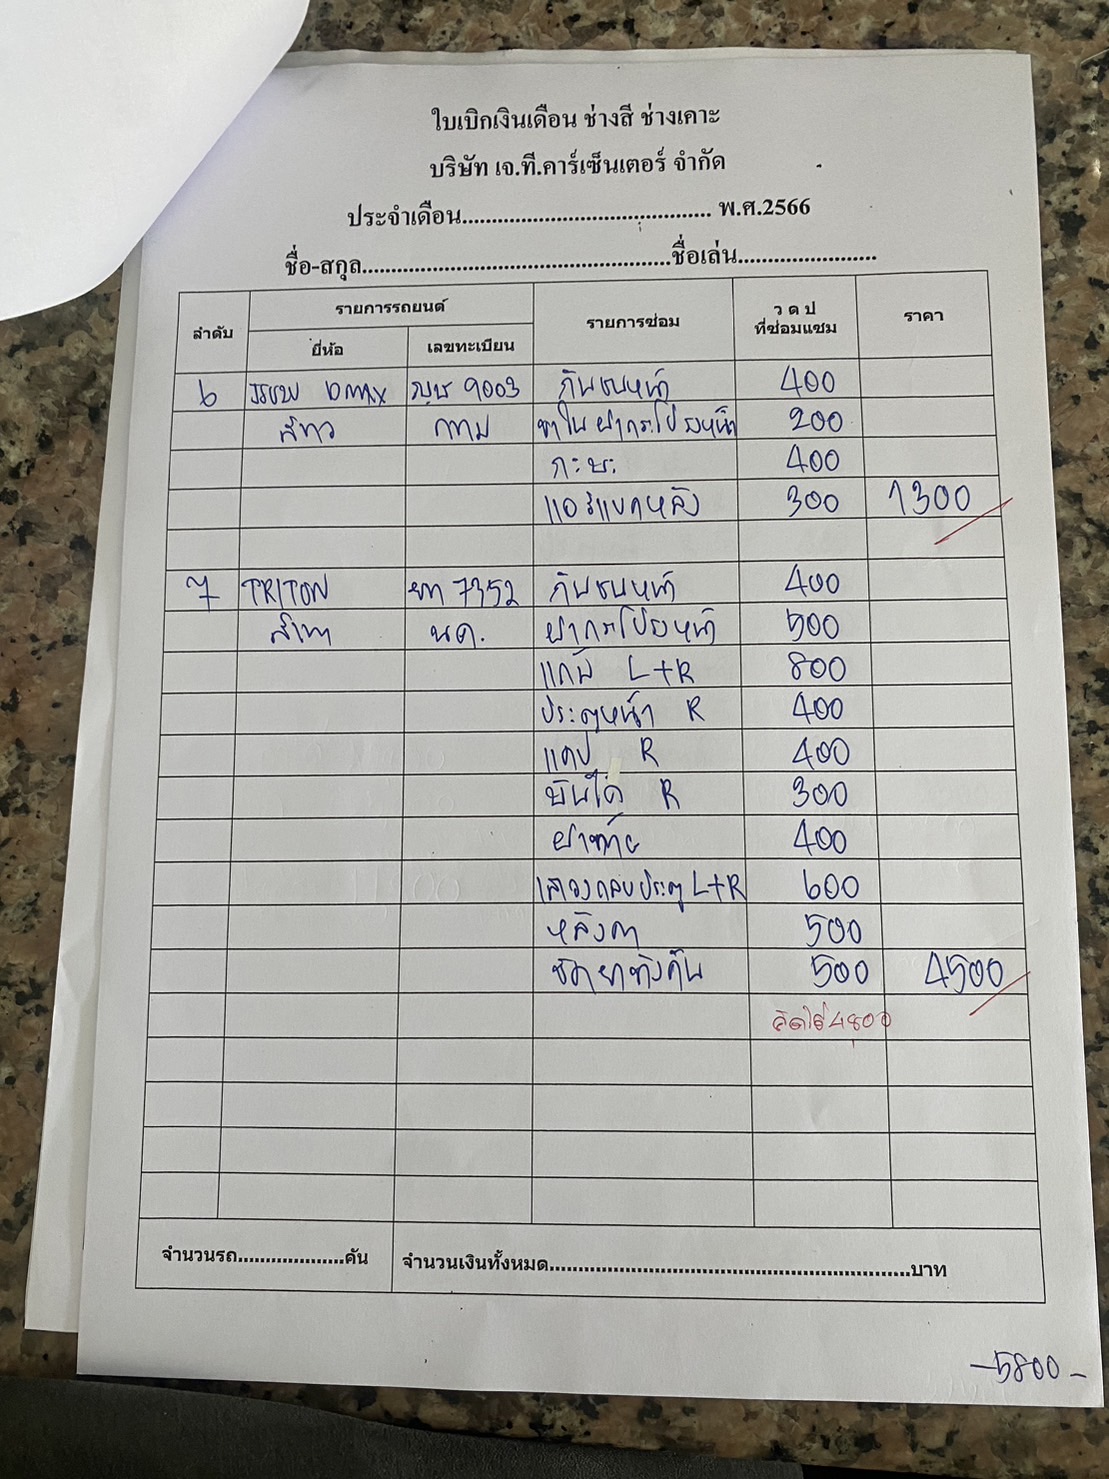 ใบเบิกเงินเดือน ช่างสี ช่างเคาะ
บริษัท เจ.ที.คาร์เซ็นเตอร์ จำกัด
ประจำเดือน.......................................... พ.ศ.2566
ชื่อ-สกุล.....................................................ชื่อเล่น........................
ลำดับ รายการรถยนต์ รายการซ่อม ว ด ป ที่ซ่อมแซม ราคา
ยี่ห้อ เลขทะเบียน
6 DMAX 9003 กันชนหน้า 400
สีขาว กทม ขาใน ฝากระโปรงหน้า 200
กะบะ 400
แอร์แบคหลัง 300 1300
7 TRITON 7352 กันชนหน้า 400
สีเทา นค. ฝากระโปรงหน้า 500
แก้ม L+R 800
ประตูหน้า R 400
แคป R 400
บันได R 300
ฝาท้าย 400
เสากลบประตู L+R 600
หลังคา 500
ขัดยาทั้งคัน 500 4500
คิดได้ 4800
จำนวนรถ...................คัน จำนวนเงินทั้งหมด..............................................................บาท
-5800-